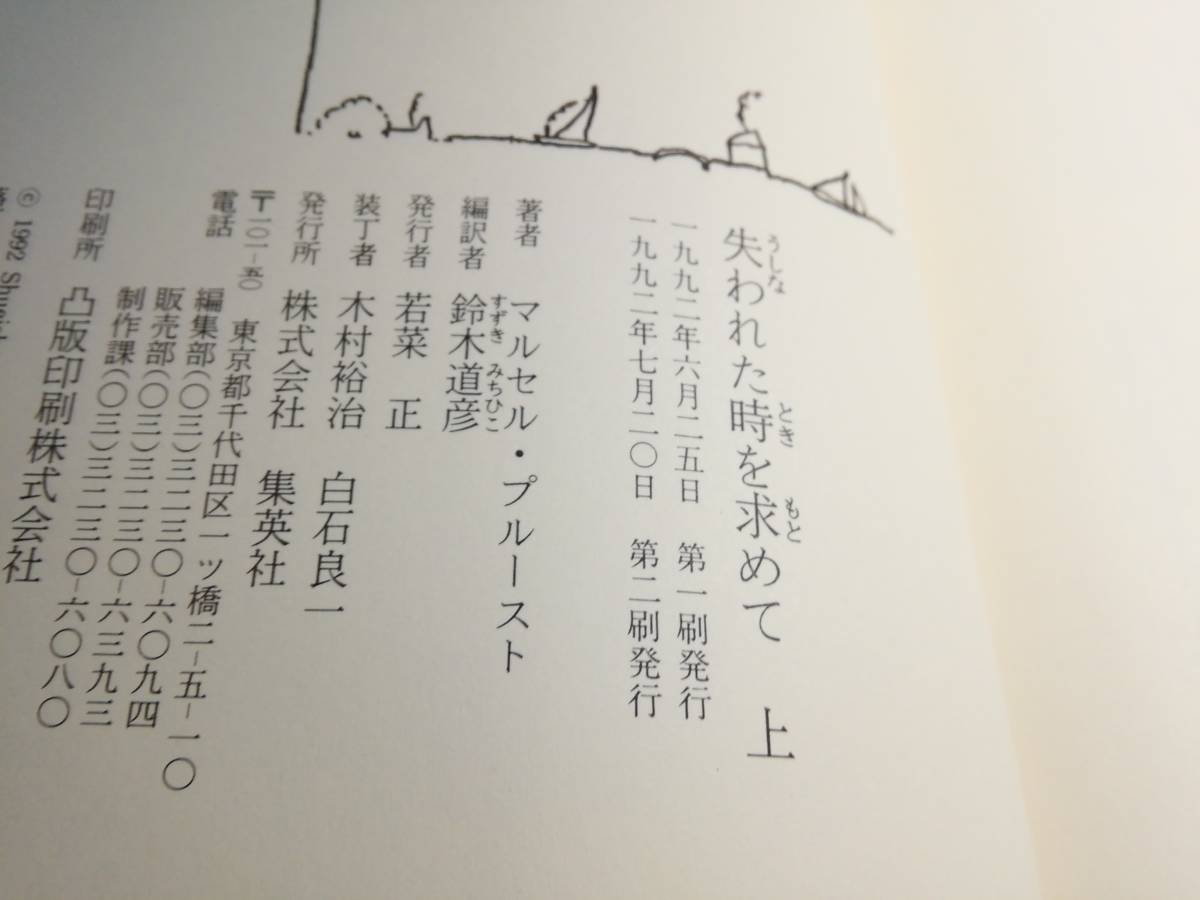 失われた時を求めて 上
うしな とき もと
一九九二年六月二五日 第一刷発行
一九九二年七月二〇日 第二刷発行
著者 マルセル・プルースト
編訳者 鈴木道彦
すずき みちひこ
発行者 若菜 正
装丁者 木村裕治 白石良一
発行所 株式会社 集英社
〒一〇一−五〇 東京都千代田区一ツ橋二−五−一〇
電話 編集部(〇三)三二三〇−六〇九四
販売部(〇三)三二三〇−六三九三
制作課(〇三)三二三〇−六〇八〇
印刷所 凸版印刷株式会社
© 1992